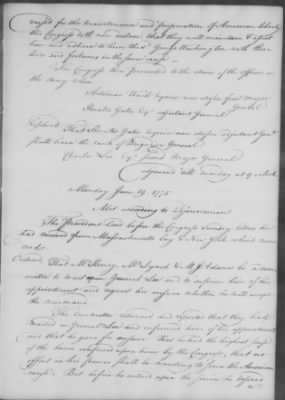 raised for the maintenance and preservation of American liberty
this Congress doth now declare that they will maintain & assist
him and adhere to him the sd George Washington with their
lives and fortunes in the same cause.
The Congress then proceeded to the choice of the officers in
the army when
Artemas Ward esquire was chosen first Major
General
Horatio Gates esqr adjutant General
Resolved That Horatio Gates esquire now chosen adjutant Genl
shall have the rank of Brigadier General
Charles Lee esqr second Major General
adjourned till monday at 9 oClock
Monday June 19. 1775
Met according to adjournment
The President laid before the Congress sundry letters he
had received from Massachusetts bay & New York which were
read.
Ordered That Mr Henry, Mr Lynch & Mr J Adams be a committee
to wait upon General Lee and to inform him of his
appointment and request his answer whether he will accept
the command.
The committee returned and reported that they had
waited on General Lee and informed him of his appointment
and that he gave for answer That he had the highest sense
of the honor conferred upon him by the Congress, that no
effort in his power shall be wanting to serve the American
cause. But before he entered upon the service he desired